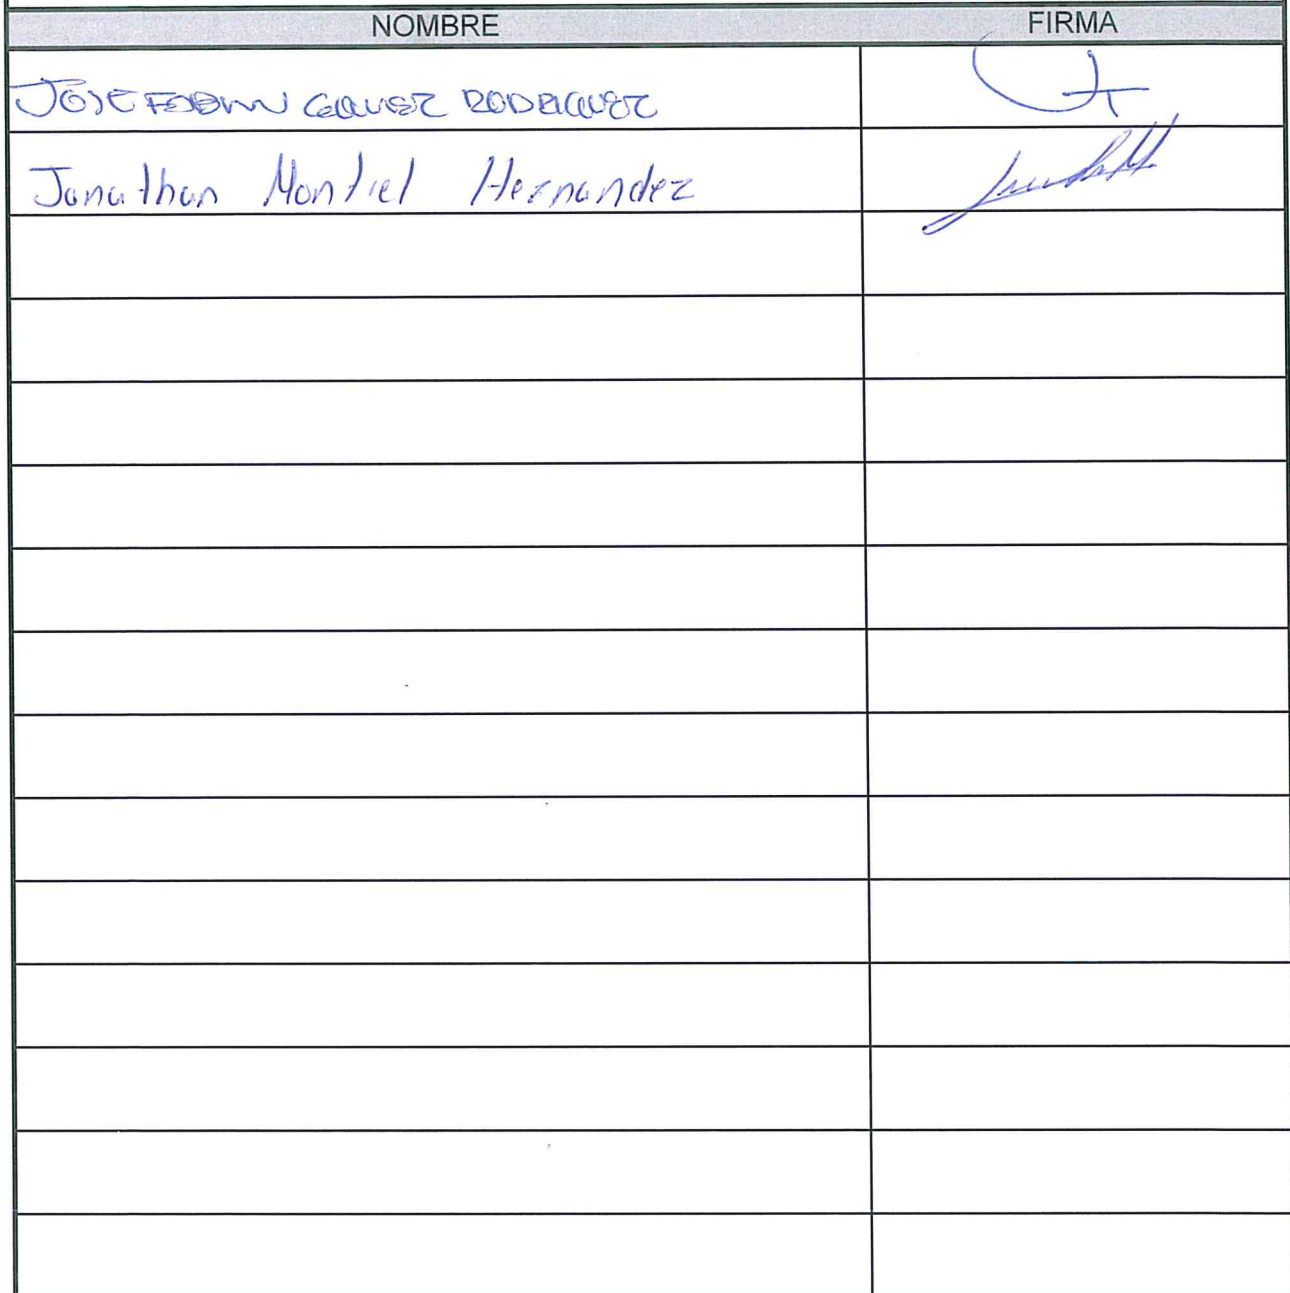 NOMBRE FIRMA
JOSE GALVEZ RODRIGUEZ
Jonathan Montiel Hernandez